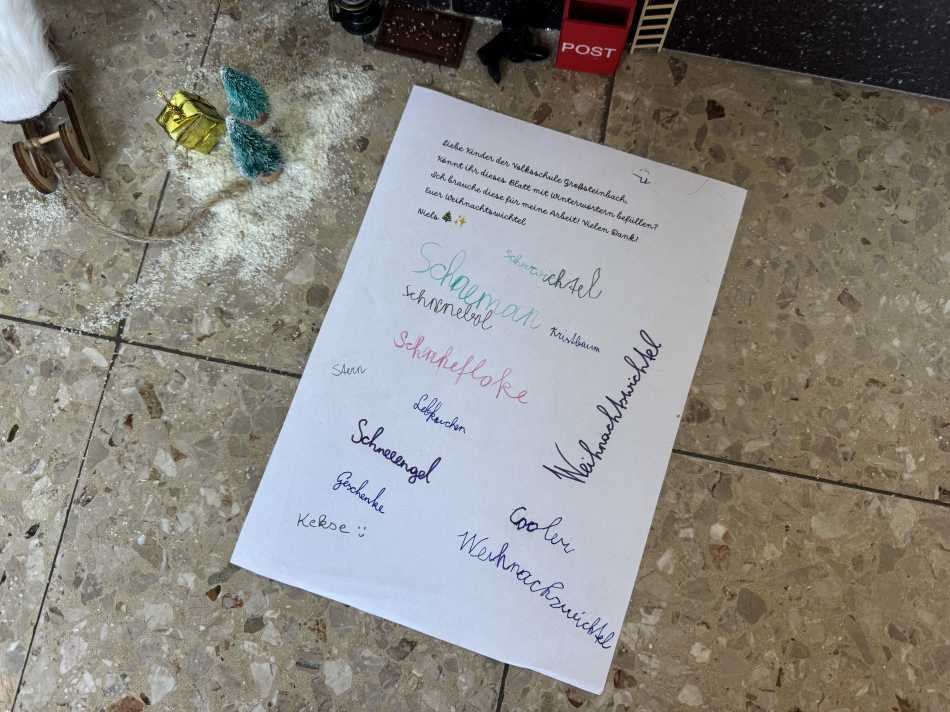 POST
Liebe Kinder der Volksschule Großsteinbach,
Könnt ihr dieses Blatt mit Winterwörtern befüllen?
Ich brauche diese für meine Arbeit! Vielen Dank!
Euer Weihnachtswichtel
Niels
Schneman
Kristbaum
Weihnachtswichtel
Stern
Lebkuchen
Schneeengel
Geschenke
Kekse :)
Cooler
Weihnachzwichtel